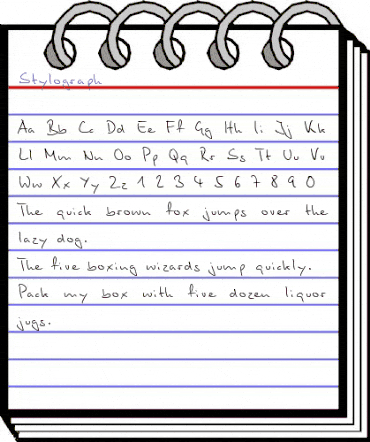 Stylograph
Aa Bb Cc Dd Ee Ff Gg Hh Ii Jj Kk
Ll Mm Nn Oo Pp Qq Rr Ss Tt Uu Vv
Ww Xx Yy Zz 1 2 3 4 5 6 7 8 9 0
The quick brown fox jumps over the
lazy dog.
The five boxing wizards jump quickly.
Pack my box with five dozen liquor
jugs.